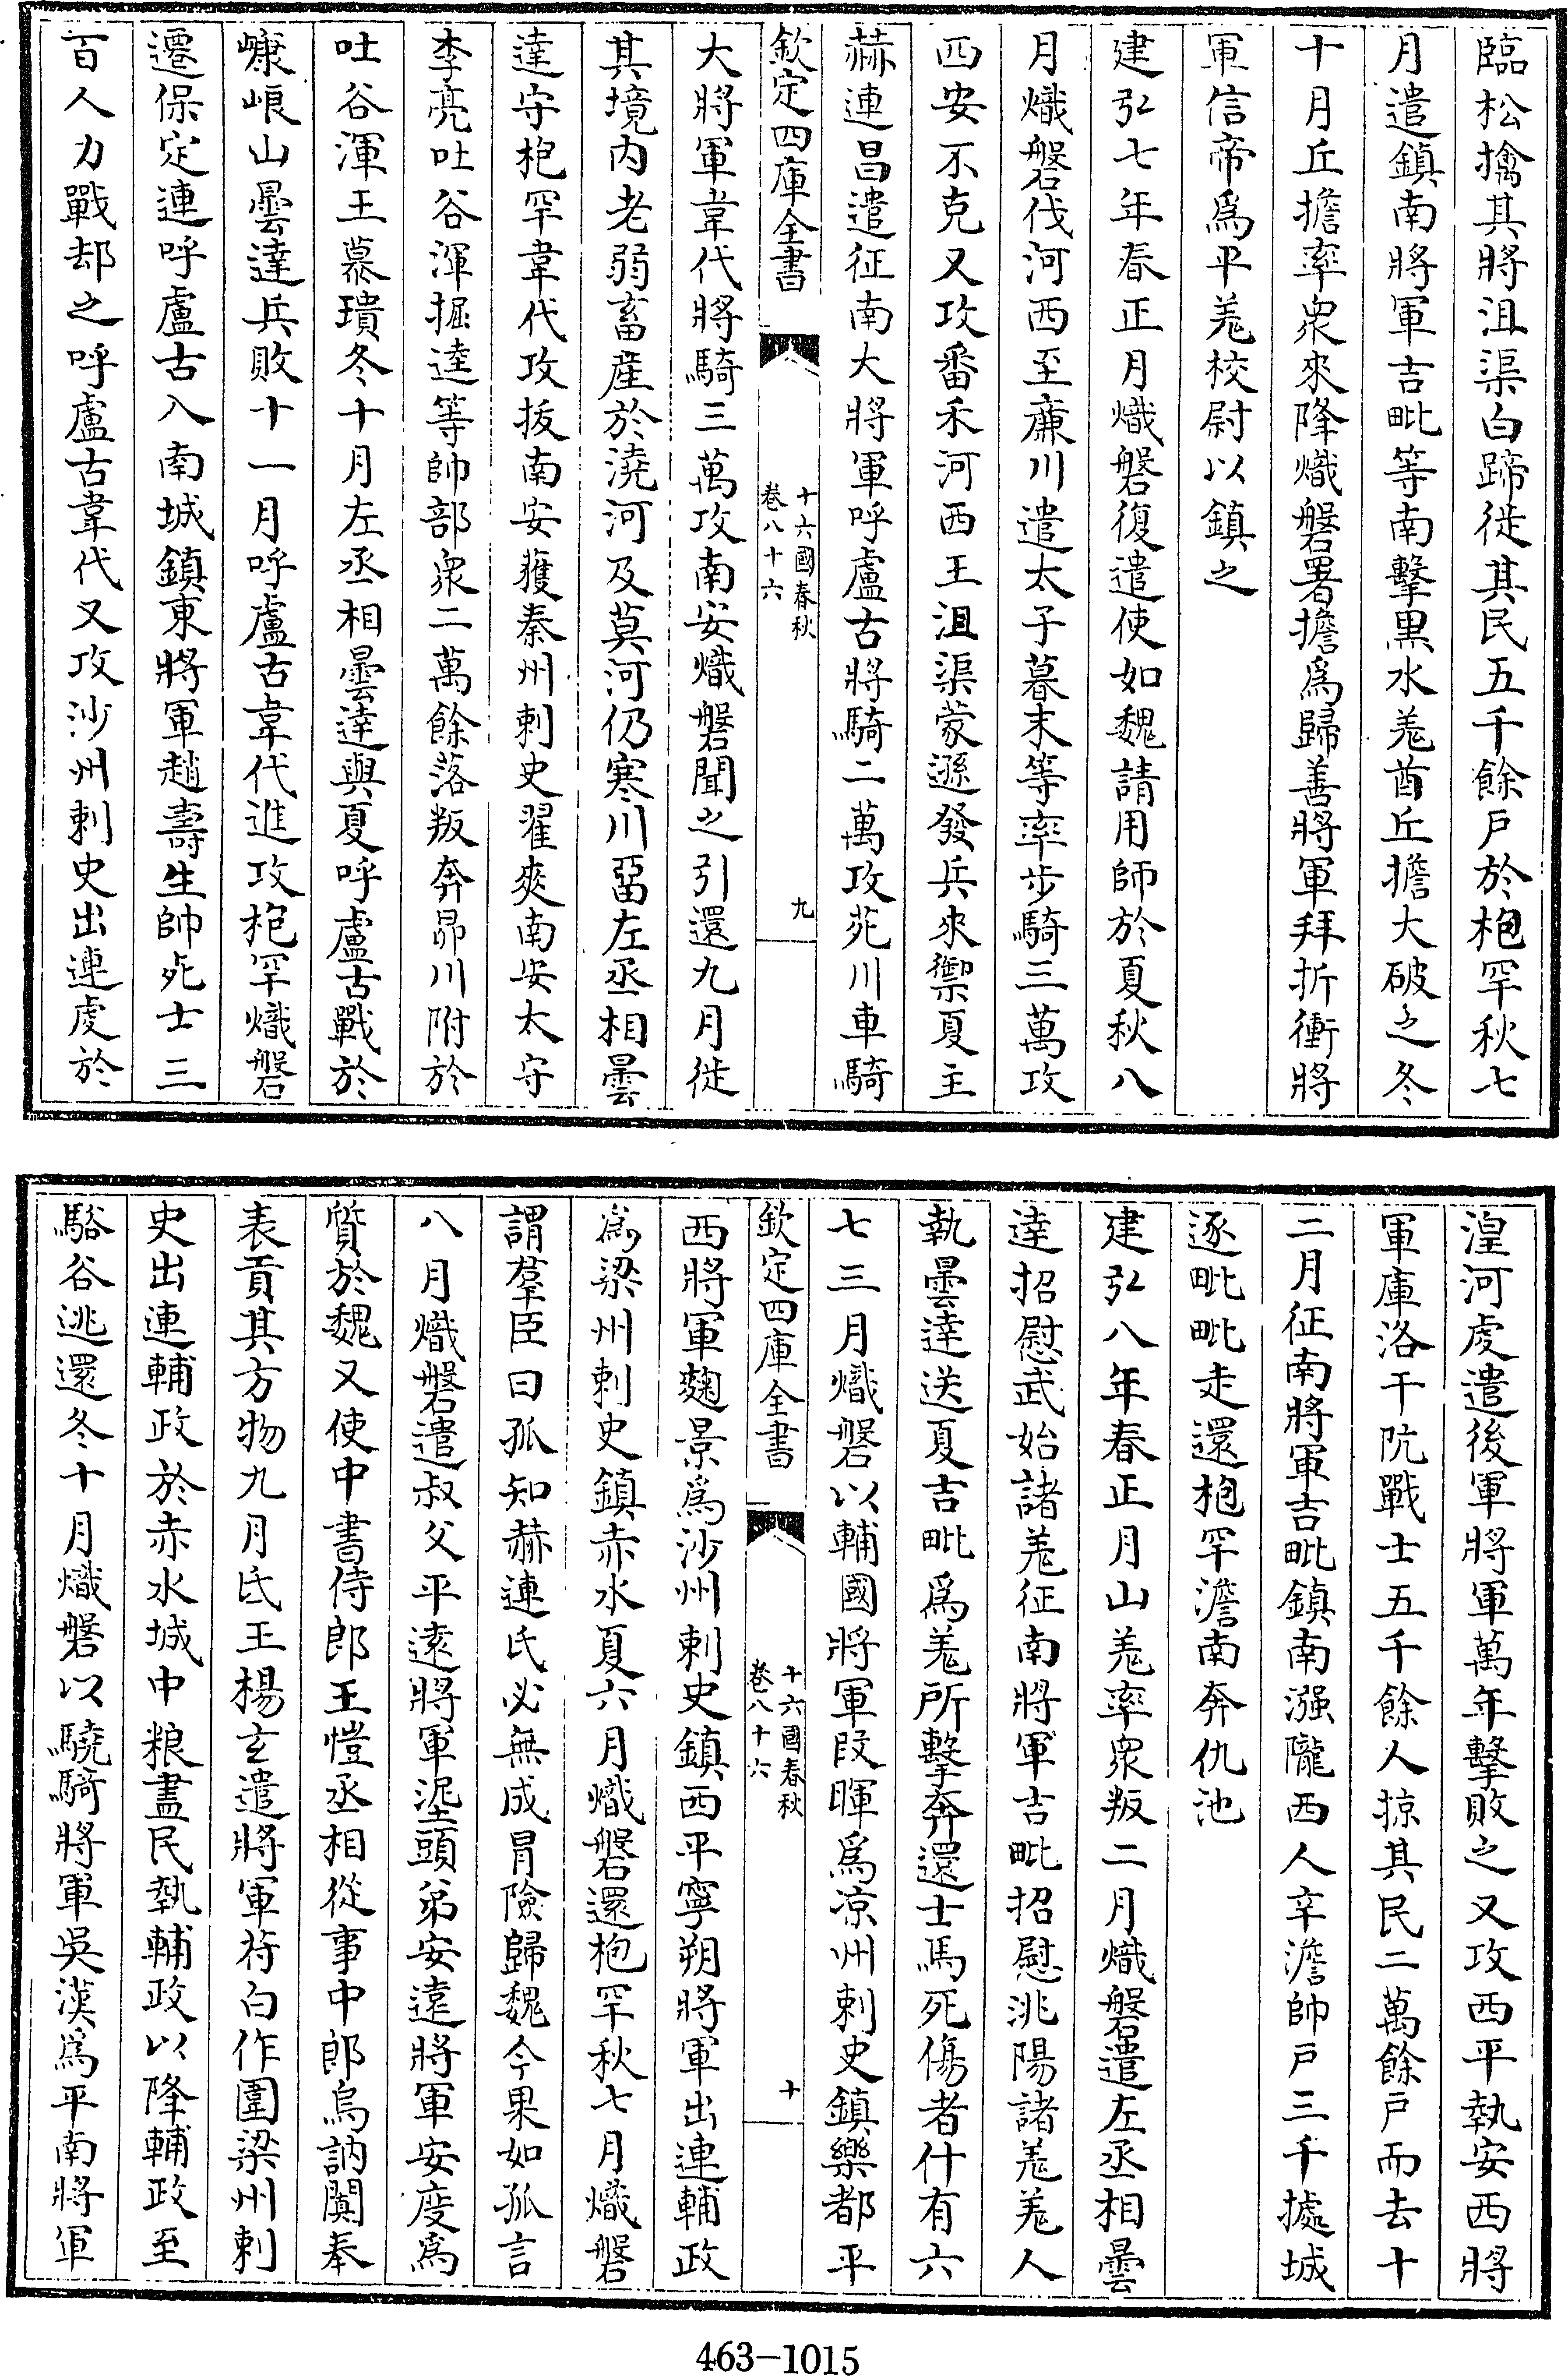 臨松擒其將沮渠白蹄徙其民五千餘戶於枹罕秋七
月遣鎮南將軍吉毗等南擊黒水羌酋丘擔大破之冬
十月丘擔率衆來降熾磐署擔爲歸善將軍拜折衝將
軍信帝爲平羌校尉以鎮之
建弘七年春正月熾磐復遣使如魏請用師於夏秋八
月熾磐伐河西至廉川遣太子暮末等率步騎三萬攻
西安不克又攻番禾河西王沮渠蒙遜發兵來禦夏主
赫連昌遣征南大將軍呼盧古將騎二萬攻苑川車騎
欽定四庫全書
十六國春秋
卷八十六
九
大將軍韋代將騎三萬攻南安熾磐聞之引還九月徙
其境内老弱畜産於澆河及莫河仍寒川留左丞相曇
達守枹罕韋代攻拔南安獲秦州刺史翟爽南安太守
李亮吐谷渾掘逵等帥部衆二萬餘落叛奔昴川附於
吐谷渾王慕璝冬十月左丞相曇達與夏呼盧古戰於
嵻㟍山曇達兵敗十一月呼盧古韋代進攻枹罕熾磐
遷保定連呼盧古入南城鎮東將軍趙壽生帥死士三
百人力戰却之呼盧古韋代又攻沙州刺史出連虔於
湟河虔遣後軍將軍萬年擊敗之又攻西平執安西將
軍庫洛干阬戰士五千餘人掠其民二萬餘戶而去十
二月征南將軍吉毗鎮南漒隴西人辛澹帥戶三千據城
逐毗毗走還枹罕澹南奔仇池
建弘八年春正月山羌率衆叛二月熾磐遣左丞相曇
達招慰武始諸羌征南將軍吉毗招慰洮陽諸羌羌人
執曇達送夏吉毗爲羌所擊奔還士馬死傷者什有六
七三月熾磐以輔國將軍段暉爲凉州刺史鎮樂都平
欽定四庫全書
十六國春秋
卷八十六
十
西將軍麴景爲沙州刺史鎮西平寧朔將軍出連輔政
爲梁州刺史鎮赤水夏六月熾磐還枹罕秋七月熾磐
謂羣臣曰孤知赫連氏必無成冒險歸魏今果如孤言
八月熾磐遣叔父平遠將軍渥頭弟安遠將軍安度爲
質於魏又使中書侍郎王愷丞相從事中郎烏訥闐奉
表貢其方物九月氐王楊玄遣將軍苻白作圍梁州刺
史出連輔政於赤水城中粮盡民執輔政以降輔政至
駱谷逃還冬十月熾磐以驍騎將軍吳漢爲平南將軍
463-1015